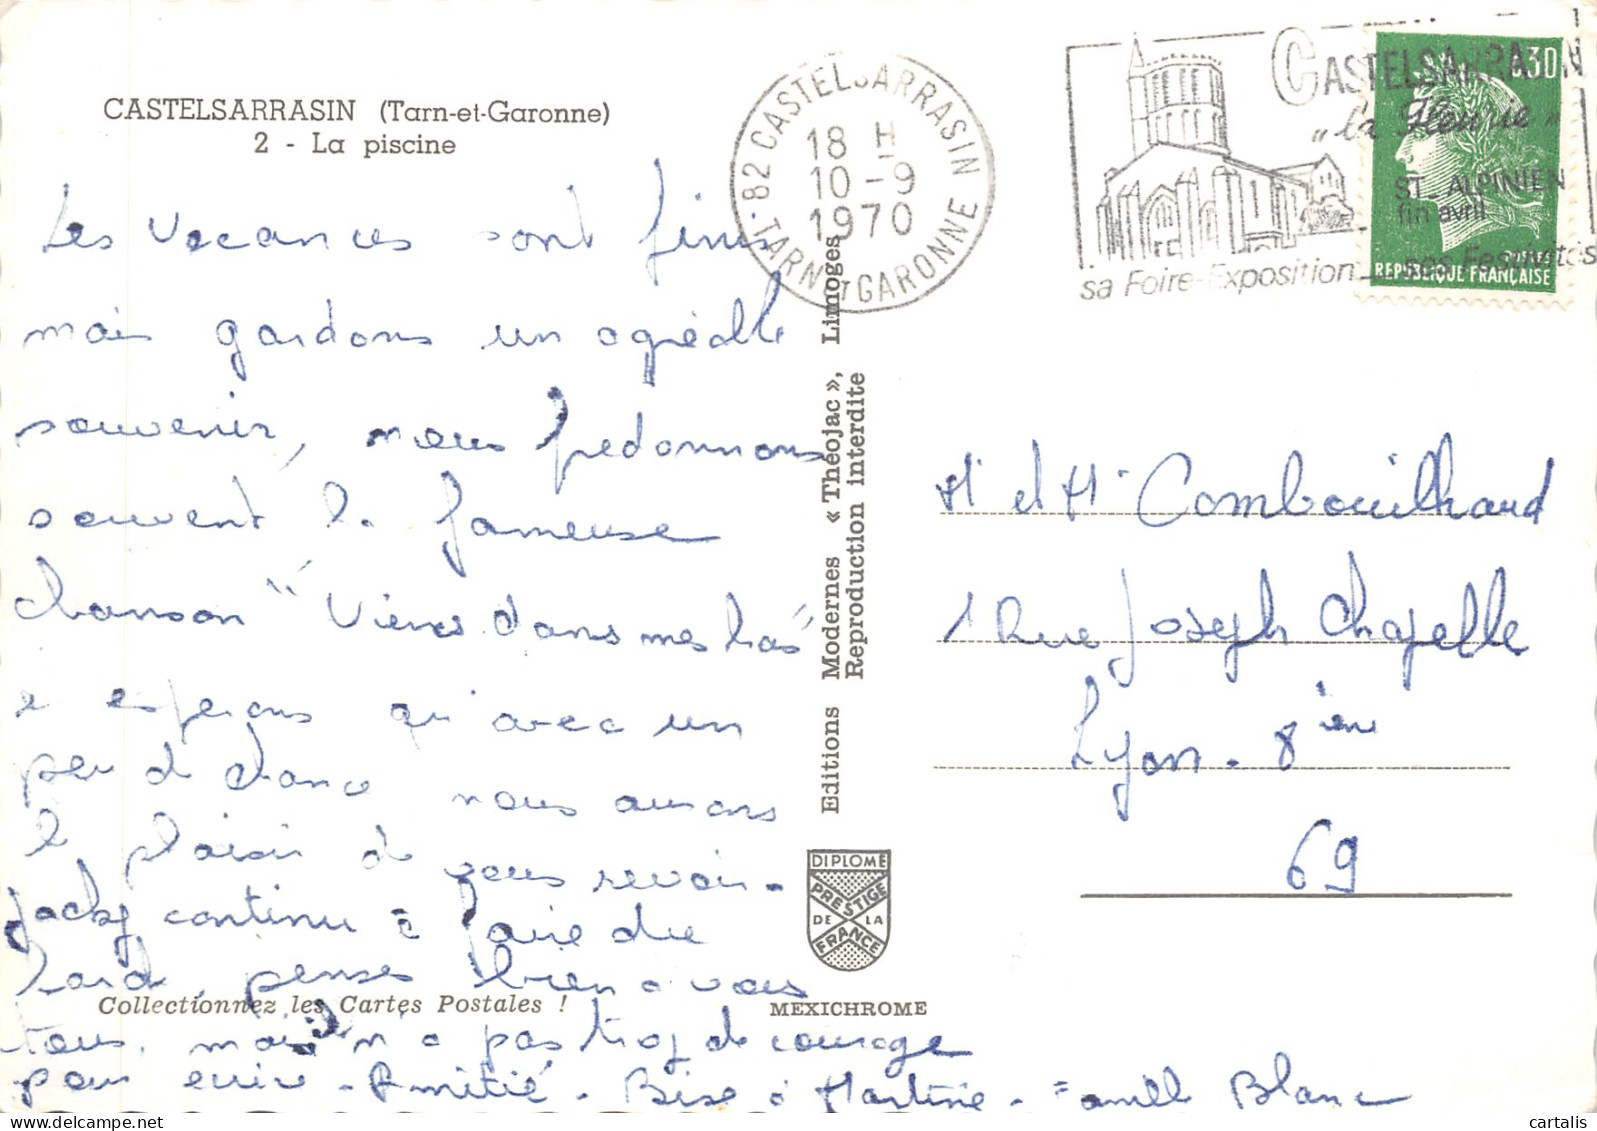 CASTELSARRASIN (Tarn-et-Garonne)
2 - La piscine
Les vacances sont finies
mais gardons un agréable
souvenir, nous fredonnons
souvent la fameuse
chanson " Viens dans mes bras "
e esperons qu'avec un
peu de chance nous aurons
le plaisir de vous revoir -
Jacky continu à faire du
lard, penses bien a vous
tous, mais n'a pas trop de courage
pour ecrire - Amitié - Bise à Martine - Famille Blanc
Collectionnez les Cartes Postales !
MEXICHROME
Editions Modernes « Théojac », Limoges
Reproduction interdite
DIPLOME
PRESTIGE
DE LA
FRANCE
82 CASTELSARRASIN
18 H
10 - 9
1970
TARN ET GARONNE
CASTELSARRASIN
" la Fleurie "
ST ALPINIEN
fin avril
sa Foire-Exposition _ ses Festivités
0,30
REPUBLIQUE FRANÇAISE
Mr et Mme Combouilhaud
1 Rue Joseph Chapelle
Lyon - 8 ième
69
cartalis